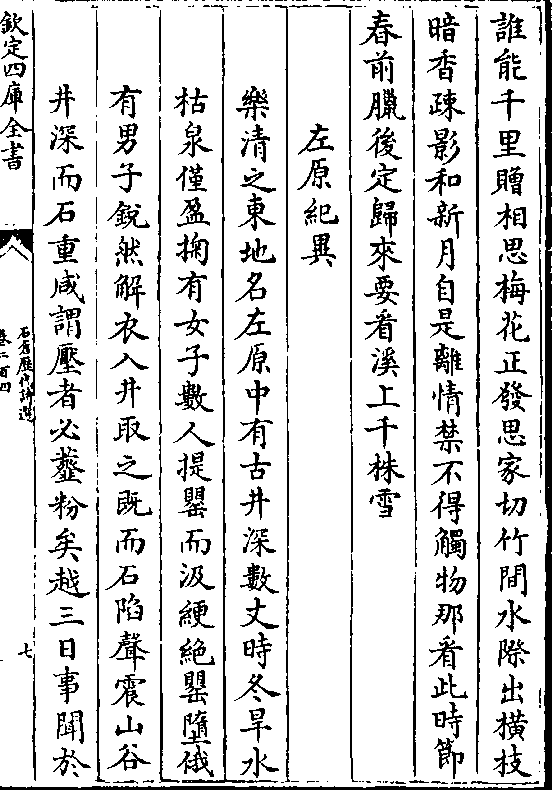 誰能千里贈相思梅花正發思家切竹間水際出横枝
暗香疎影和新月自是離情禁不得觸物那看此時節
春前臘後定歸來要看溪上千株雪
左原紀異
樂清之東地名左原中有古井深數丈時冬旱水
枯泉僅盈掬有女子數人提罌而汲綆絶罌墮俄
有男子鋭然解衣入井取之既而石陷聲震山谷
井深而石重咸謂壓者必虀粉矣越三日事聞於
欽定四庫全書
石倉歷代詩選
卷二百四
七